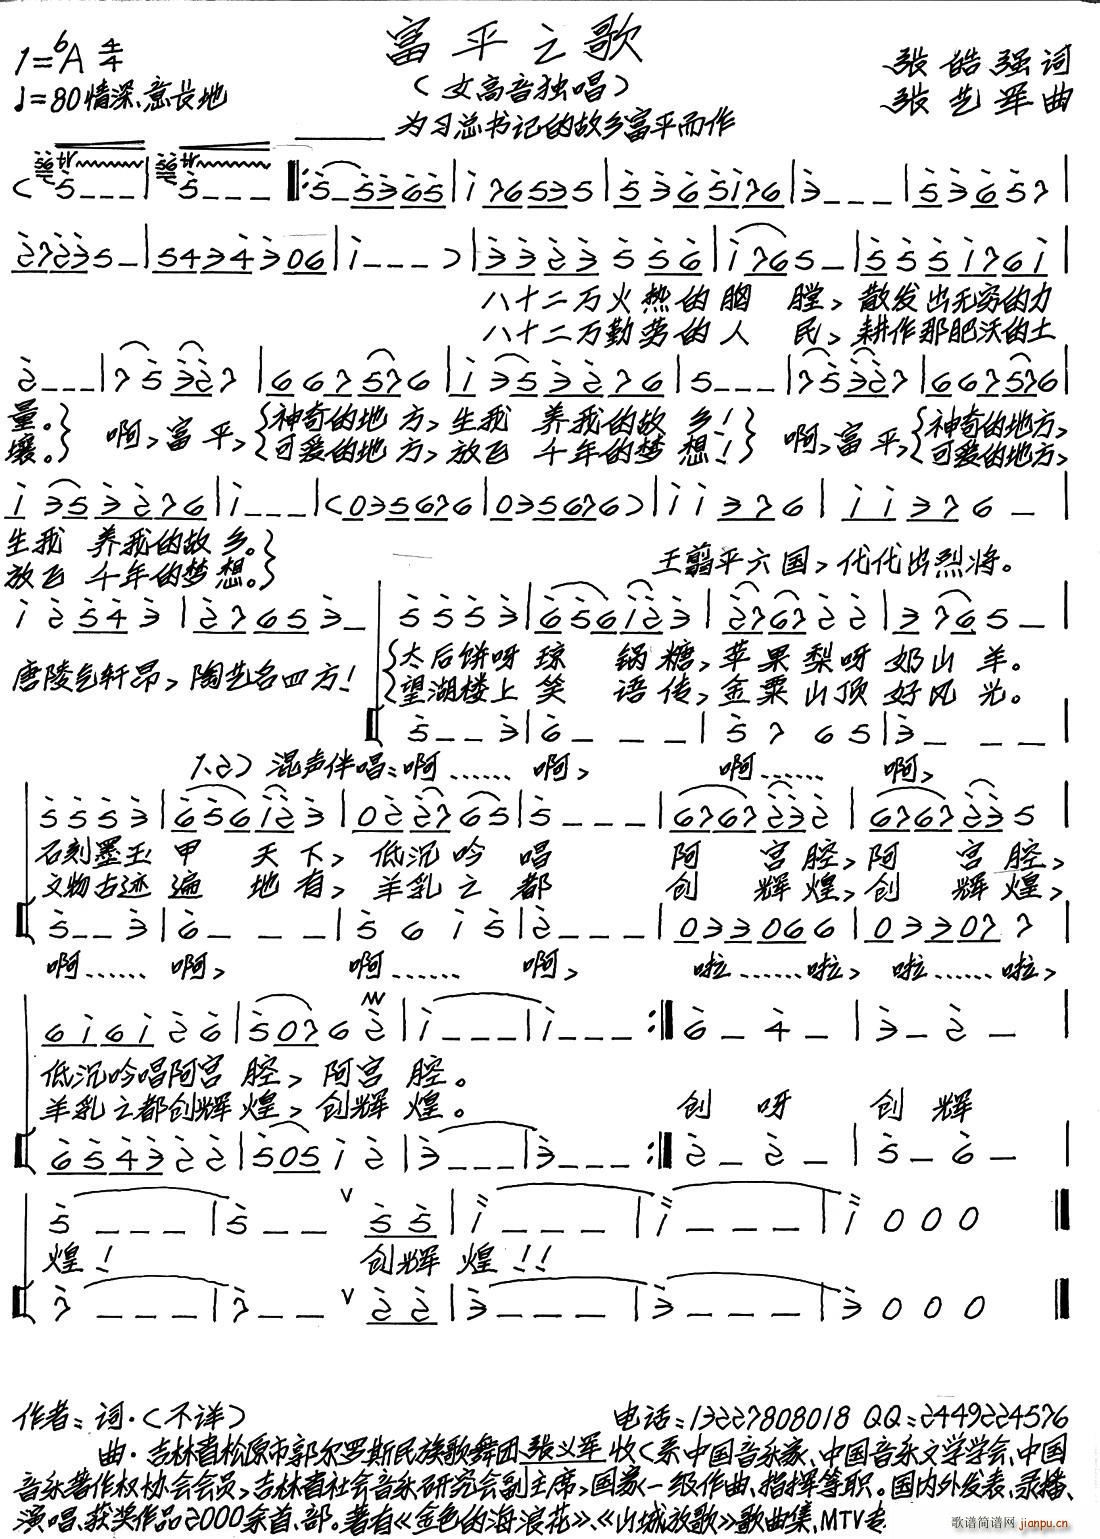 富平之歌
1=ᵇA 4/4
张皓强 词
(女高音独唱)
♩=80 情深、意长地
张艺军 曲
为习总书记的故乡富平而作
八十二万火热的胸膛，散发出无穷的力
八十二万勤劳的人民，耕作那肥沃的土
量。 啊，富平，神奇的地方，生我养我的故乡！ 啊，富平，神奇的地方，
壤。 可爱的地方，放飞千年的梦想！ 可爱的地方，
生我养我的故乡。
王翦平六国，代代出烈将。
放飞千年的梦想。
太后饼呀琼锅糖，苹果梨呀奶山羊。
唐陵气轩昂，陶艺名四方！
望湖楼上笑语传，金粟山顶好风光。
1.2) 混声伴唱：啊…… 啊， 啊…… 啊，
石刻墨玉甲天下，低沉吟唱阿宫腔，阿宫腔，
文物古迹遍地有，羊乳之都创辉煌，创辉煌，
啊…… 啊， 啊…… 啊， 啦……啦， 啦……啦，
低沉吟唱阿宫腔，阿宫腔。
羊乳之都创辉煌，创辉煌。 创呀创辉
煌！ 创辉煌！！
作者：词·(不详) 电话：13227808018 QQ：2449224576
曲·吉林省松原市郭尔罗斯民族歌舞团张义军收(系中国音乐家、中国音乐文学学会、中国
音乐著作权协会会员，吉林省社会音乐研究会副主席，国家一级作曲、指挥等职。国内外发表、录播、
演唱、获奖作品2000余首、部。著有《金色的海浪花》、《山城放歌》歌曲集、MTV专
歌谱简谱网
jianpu.cn